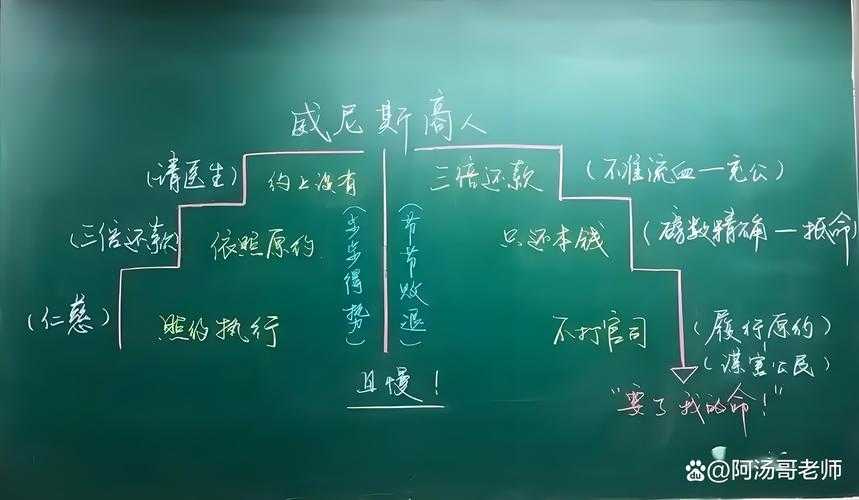 威尼斯商人
(请医生) 约上没有 三倍还款 (不准流血一充公)
(三倍还款) 依照原约 只还本钱 (磅数精确一抵命)
(仁慈) 照约执行 不打官司 (履行原约)
(谋害公民)
(步步得势)
(节节败退)
且慢!
"要了我的命!"
Baidu @阿汤哥老师